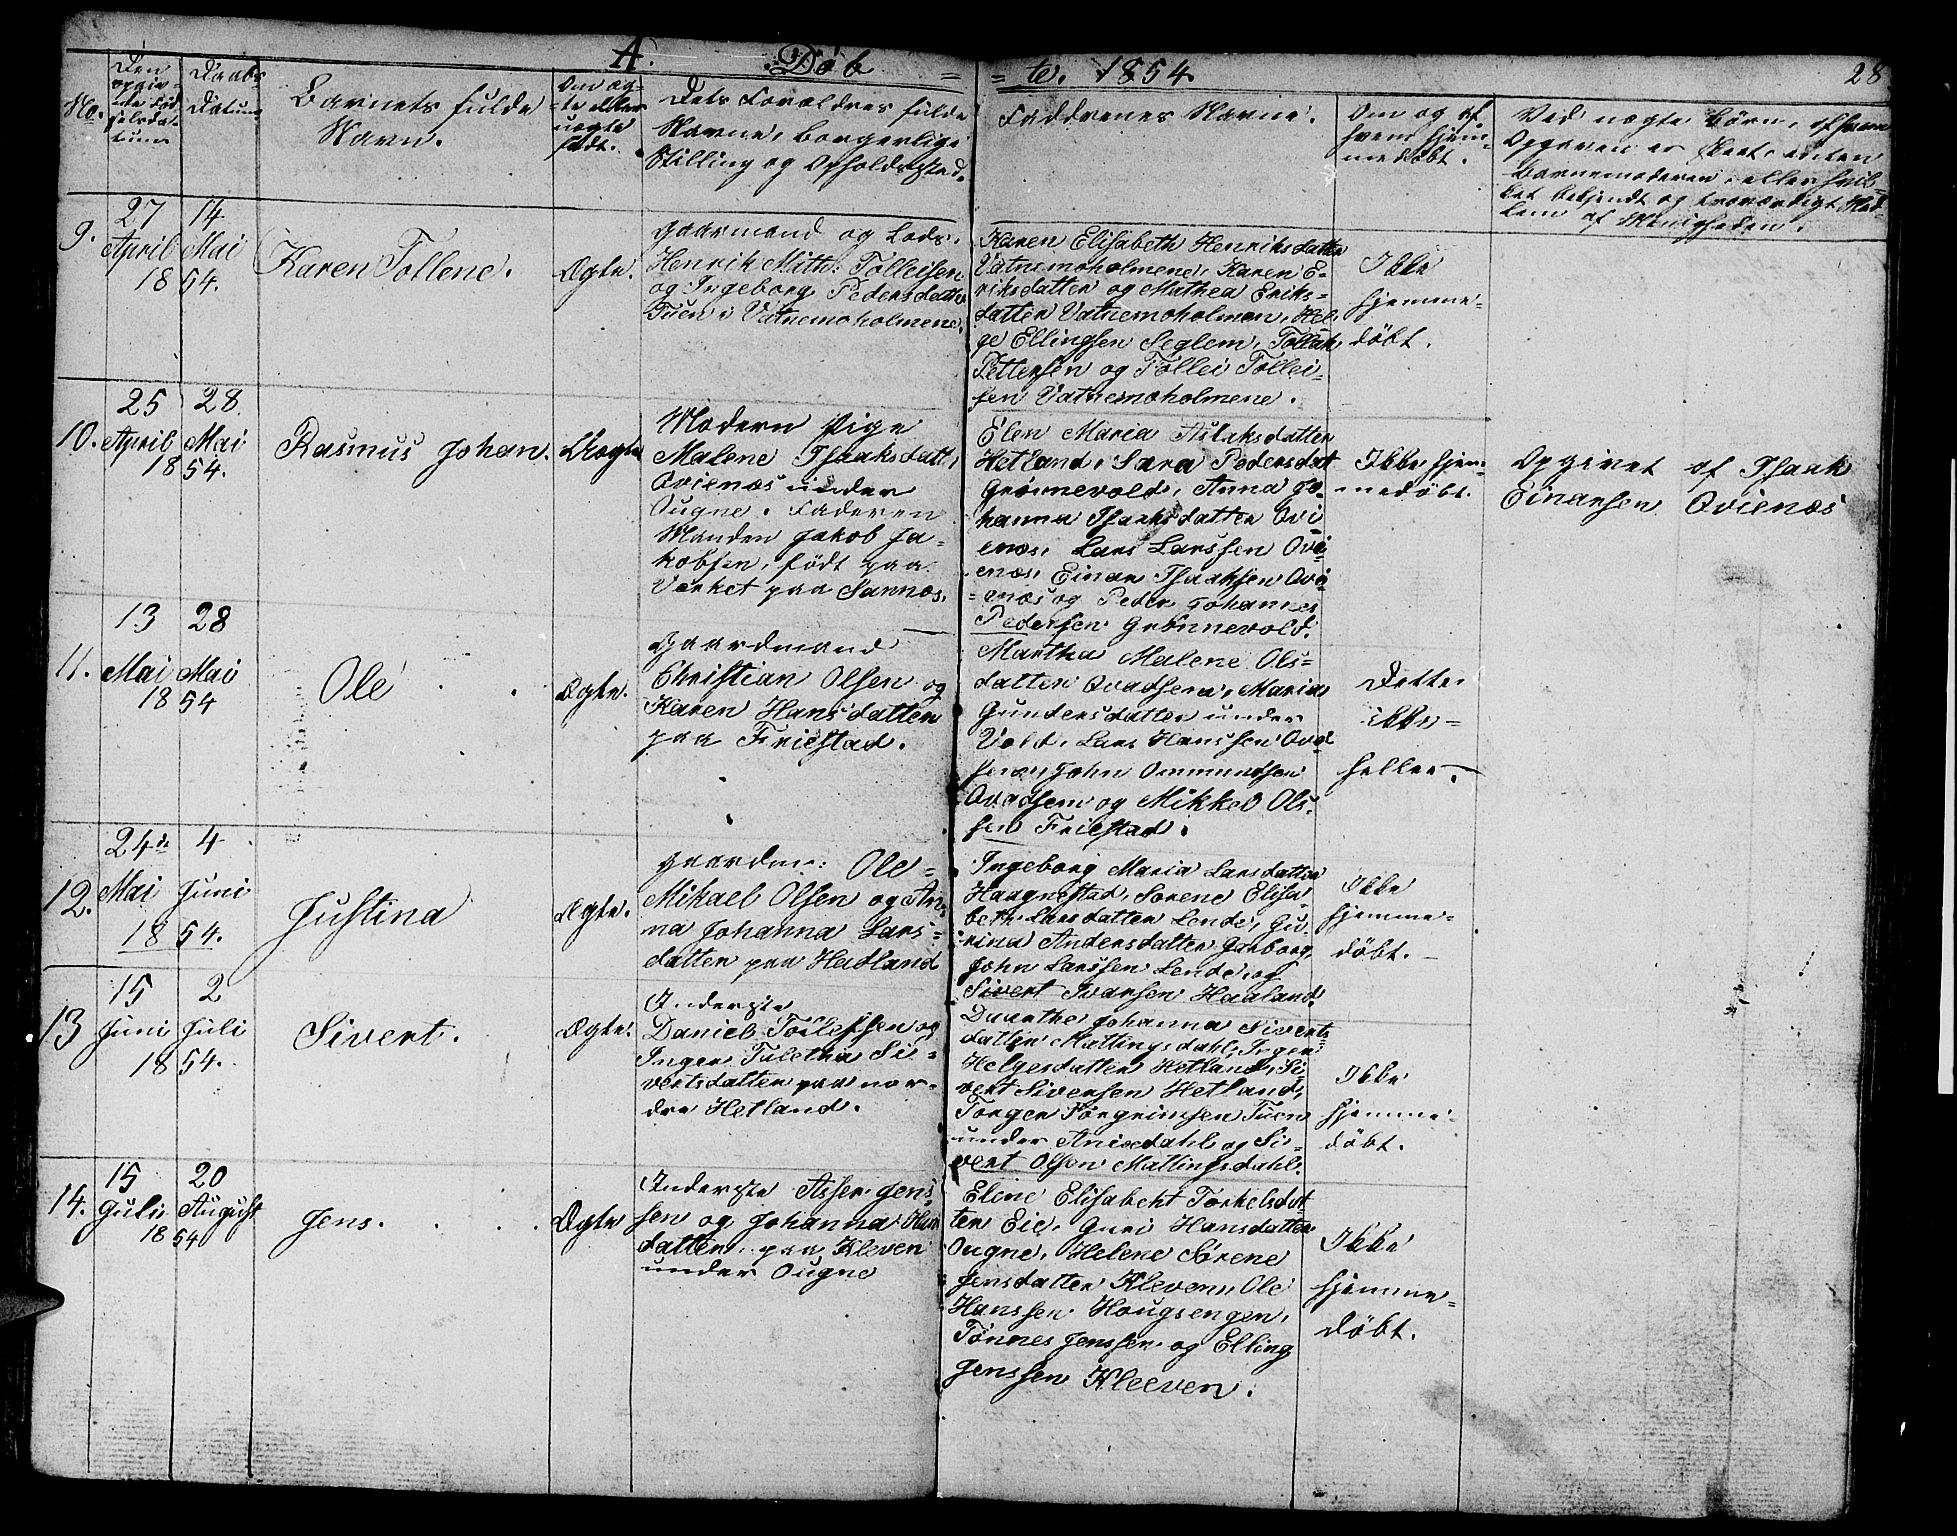 A. Døb = = te. 1854. 28
No.
Den opgivne Fødselsdatum
Daabs Datum
Barnets fulde Navn.
Om ægte eller uægte født.
Dets Forældres fulde Navne, borgerlige Stilling og Opholdssted.
Faddrenes Navne.
Om og af hvem hjemmedøbt.
Ved uægte Børn, af hvem Opgaven er skeet, enten Barnemoderen, eller hvilket bekjendt og troværdigt Medlem af Menigheden.
9.
27 April 1854.
14 Mai
Karen Tollene.
Ægte.
Gaarmand og Lods.
Henrik Math: Tolleifsen
og Ingeborg Pedersdatter
Tuen i Vatnemoholmene.
Karen Elisabeth Henriksdatter
Vatnemoholmene, Karen E-
riksdatter og Mathea Eriks=
datter Vatnemoholmen, Hel-
ge Ellingsen Seglem, Tollak
Pettersen og Tollei Tollei=
sen Vatnemoholmene.
Ikke
hjemme=
døbt.
10.
25 April 1854.
28. Mai
Rasmus Johan.
Uægte
Modern Pige
Malene Isaaksdatt,
Qvienæs under
Ougne. Faderen
Manden Jakob Ja=
kobsen, født paa
Værket paa Sannæs.
Elen Maria Aslaksdatter
Hetland, Sara Pedersdat
Grønnevold, Anna Jo-
hanna Isaaksdatter Qvi
enæs, Lars Larssen Qvi
enæs, Einar Isaaksen Qvi
=enæs og Peder Johannes
Pedersen Grønnevold.
Ikke hjem=
medøbt.
Opgivet af Isaak
Einarsen Qvienæs
11.
13 Mai 1854
28 Mai
Ole
Ægte.
Gaardmand
Christian Olsen og
Karen Hansdatter
paa Friestad.
Martha Malene Ols=
datter Qvadsem, Maria
Gundersdatter under
Vold, Lars Hanssen Qvad
sem, John Ommundsen
Qvadsem og Mikkel Ols-
sen Friestad.
Dette
ikke=
heller.
12.
24de Mai 1854.
4 Juni
Justina
Ægte.
Gaardm: Ole=
Mikael Olsen og An=
na Johanna Lars=
datter paa Hadland
Ingeborg Maria Larsdatter
Haagnestad, Sorene Elisa-
beth Larsdatter Lende, Gu-
rina Andersdatter Garborg,
John Larssen Lende, og
Sivert Ivarsen Haaland.
Ikke
hjemme=
døbt.
13
15 Juni 1854.
2 Juli
Sivert.
Ægte.
Inderste
Daniel Tollefsen og
Inger Taletha Si=
vertsdatter paa nor=
dre Hetland.
Daarthe Johanna Siverts
datter Mattingsdahl, Inger
Helgesdatter Hetland, Si-
vert Siversen Hetland,
Torger Torgrimsen Tuen
under Anisdahl og Si=
vert Olsen Mattingsdahl.
Ikke
hjemme
døbt.
14.
15 Juli 1854
20 August
Jens.
Ægte
Inderste Asser Jens=
sen og Johanna Hans
datter paa Kleven
under Ougne
Elene Elisabeht Torkelsdat
ter Eie, Guri Hansdatter
Ougne, Helene Sørene
Jensdatter Kleven, Ole
Hanssen Hougsengen,
Tønnes Jenssen og Elling
Jenssen Kleeven.
Ikke
hjemme=
døbt.